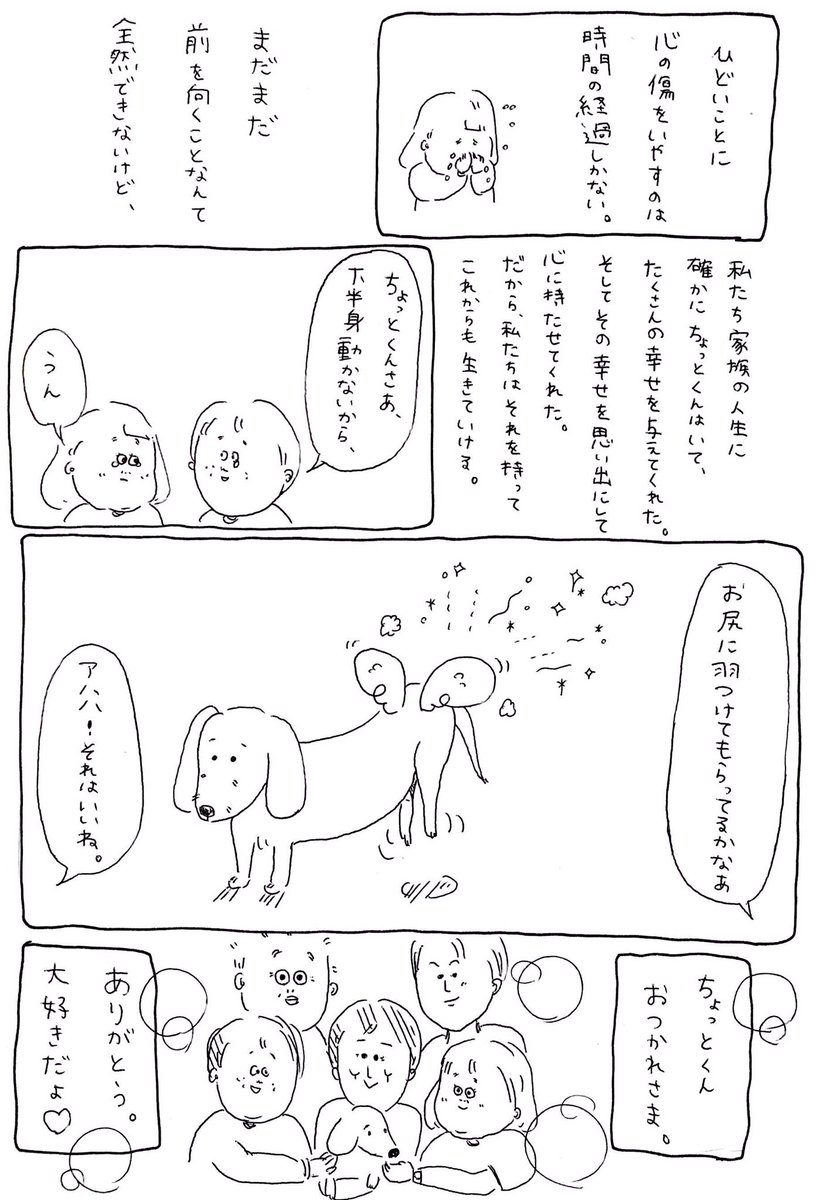 ひどいことに
心の傷をいやすのは
時間の経過しかない。
まだまだ
前を向くことなんて
全然できないけど、
私たち家族の人生に
確かにちょっとくんはいて、
たくさんの幸せを与えてくれた。
そしてその幸せを思い出にして
心に持たせてくれた。
だから、私たちはそれを持って
これからも生きていける。
ちょっとくんさあ、
下半身動かないから、
うん
お尻に羽つけてもらってるかなあ
アハハ！それはいいね。
ちょっとくん
おつかれさま。
ありがとう。
大好きだよ♡